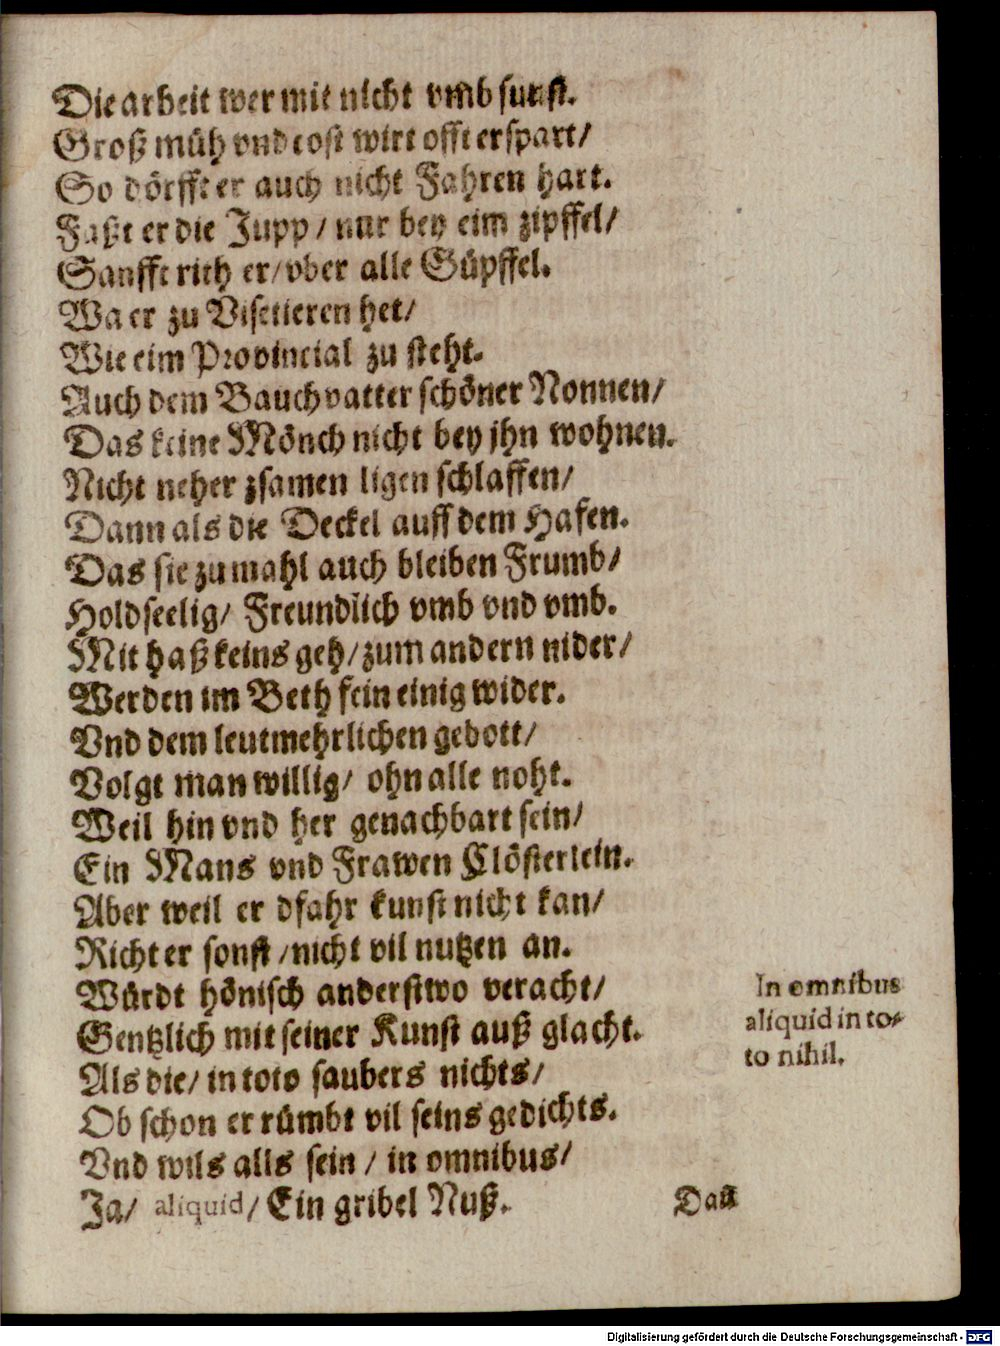 Die arbeit wer mit nicht vmb sunst.
Groß müh vnd cost wirt offt erspart/
So dörfft er auch nicht Fahren hart.
Faßt er die Jupp / nur bey eim zipffel/
Sanfft rith er/ vber alle Güpffel.
Wa er zu Visetieren het/
Wie eim Provincial zu steht.
Auch dem Bauchvatter schöner Nonnen/
Das keine Mönch nicht bey jhn wohnen.
Nicht neher zsamen ligen schlaffen/
Dann als die Deckel auff dem Hafen.
Das sie zumahl auch bleiben Frumb/
Holdseelig/ Freundlich vmb vnd vmb.
Mit haß keins geh/ zum andern nider/
Werden im Beth fein einig wider.
Vnd dem leutmehrlichen gebott/
Volgt man willig/ ohn alle noht.
Weil hin vnd her genachbart sein/
Ein Mans vnd Frawen Clösterlein.
Aber weil er dfahr kunst nicht kan/
Richt er sonst / nicht vil nutzen an.
Würdt hönisch anderstwo veracht/
Gentzlich mit seiner Kunst auß glacht.
Als die/ in toto saubers nichts/
Ob schon er rümbt vil seins gedichts.
Vnd wils alls sein / in omnibus/
Ja/ aliquid/ Ein gribel Nuß.
In omnibus
aliquid in to-
to nihil.
Daß
Digitalisierung gefördert durch die Deutsche Forschungsgemeinschaft - DFG